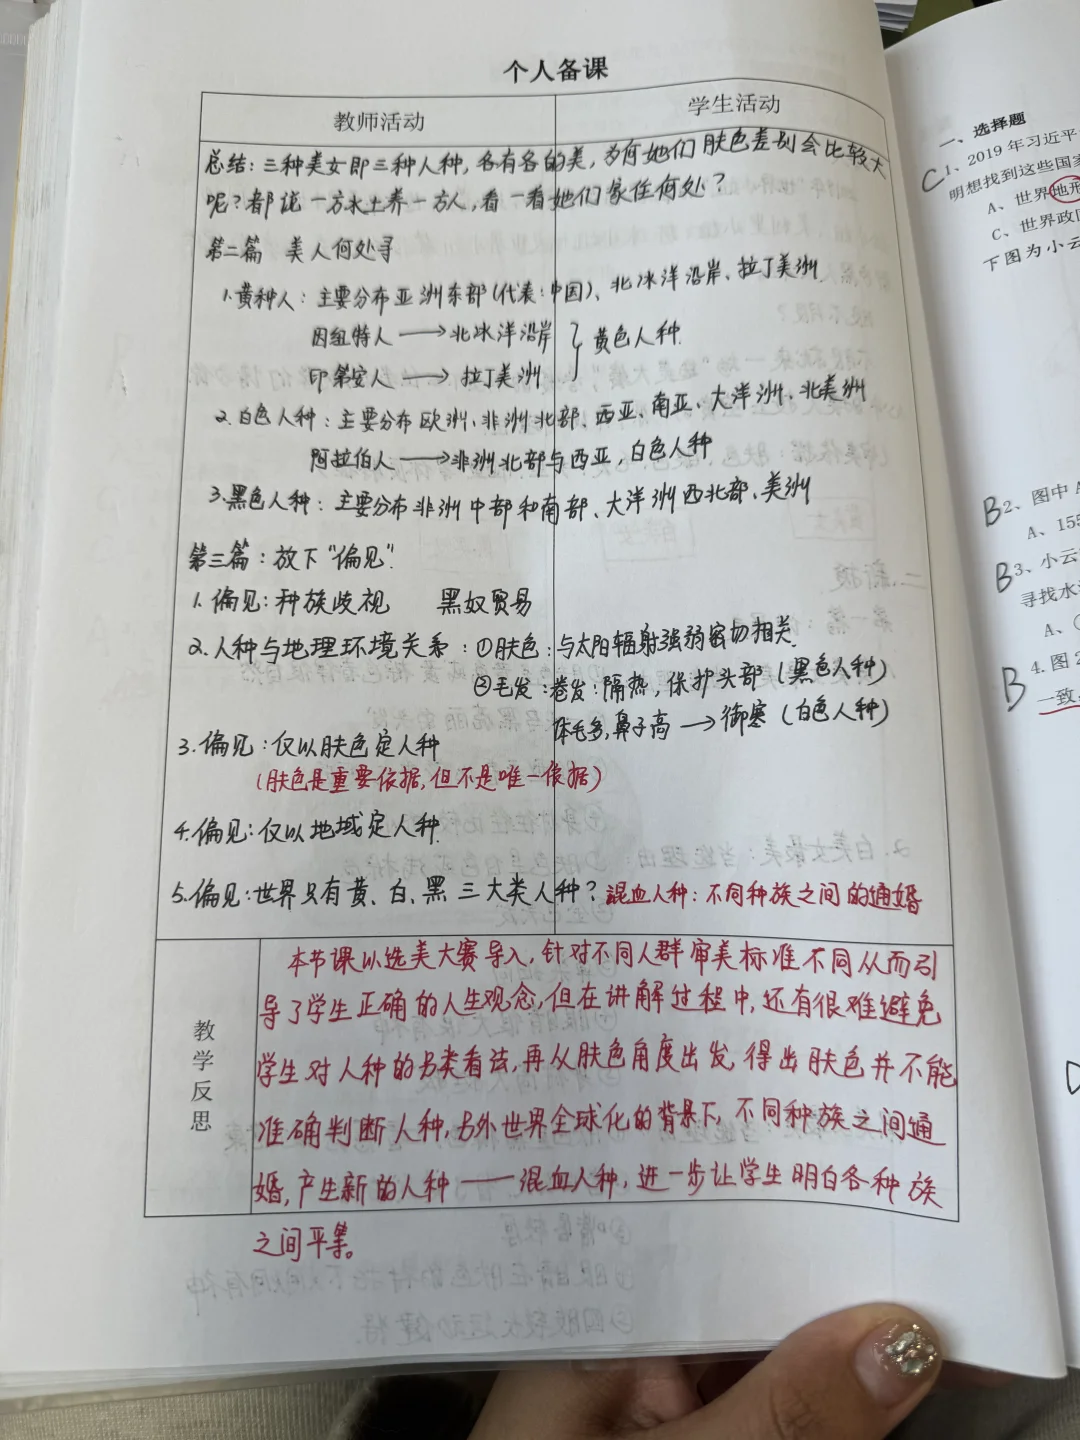 个人备课
教师活动
学生活动
总结：三种美女即三种人种，各有各的美，为何她们肤色差别会比较大
呢？都说一方水土养一方人，看一看她们家住何处？
第二篇 美人何处寻
1.黄种人：主要分布亚洲东部(代表：中国)、北冰洋沿岸、拉丁美洲
因纽特人→北冰洋沿岸
印第安人→拉丁美洲
黄色人种.
2.白色人种：主要分布欧洲、非洲北部、西亚、南亚、大洋洲、北美洲
阿拉伯人→非洲北部与西亚，白色人种
3.黑色人种：主要分布非洲中部和南部、大洋洲西北部、美洲
第三篇：放下"偏见".
1.偏见：种族歧视 黑奴贸易
2.人种与地理环境关系：①肤色：与太阳辐射强弱密切相关.
②毛发：卷发：隔热，保护头部(黑色人种)
体毛多,鼻子高→御寒(白色人种)
3.偏见：仅以肤色定人种
(肤色是重要依据,但不是唯一依据)
4.偏见：仅以地域定人种.
5.偏见：世界只有黄、白、黑三大类人种？混血人种：不同种族之间的通婚
教学反思
本节课以选美大赛导入，针对不同人群审美标准不同从而引
导了学生正确的人生观念,但在讲解过程中,还有很难避免
学生对人种的另类看法,再从肤色角度出发,得出肤色并不能
准确判断人种,另外世界全球化的背景下,不同种族之间通
婚,产生新的人种——混血人种,进一步让学生明白各种族
之间平等。
一、选择题
C1、2019年习近平
明想找到这些国家
A、世界地形
C、世界政
下图为小云
B2、图中A
A、155
B3、小云
寻找水
A、
B4.图2
一致